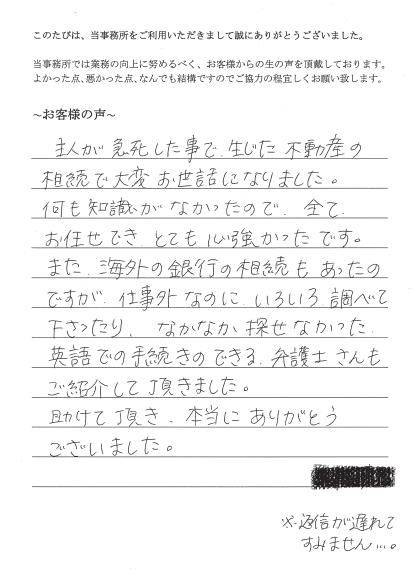 このたびは、当事務所をご利用いただきまして誠にありがとうございました。
当事務所では業務の向上に努めるべく、お客様からの生の声を頂戴しております。
よかった点、悪かった点、なんでも結構ですのでご協力の程宜しくお願い致します。
~お客様の声~
主人が急死した事で、生じた不動産の
相続で大変お世話になりました。
何も知識がなかったので、全て、
お任せでき、とても心強かったです。
また、海外の銀行の相続もあったの
ですが、仕事外なのに、いろいろ調べて
下さったり、なかなか探せなかった、
英語での手続きのできる、弁護士さんも
ご紹介して頂きました。
助けて頂き、本当にありがとう
ございました。
※返信が遅れて
すみません…。